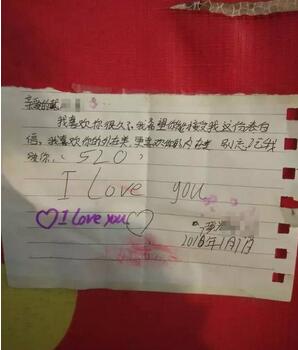 亲爱的
我喜欢你很久了,我希望你能接受我这份表白
信,我喜欢你的外在美,更喜欢你的内在美
你.(520)
I love you
I love you
2016年1月1日